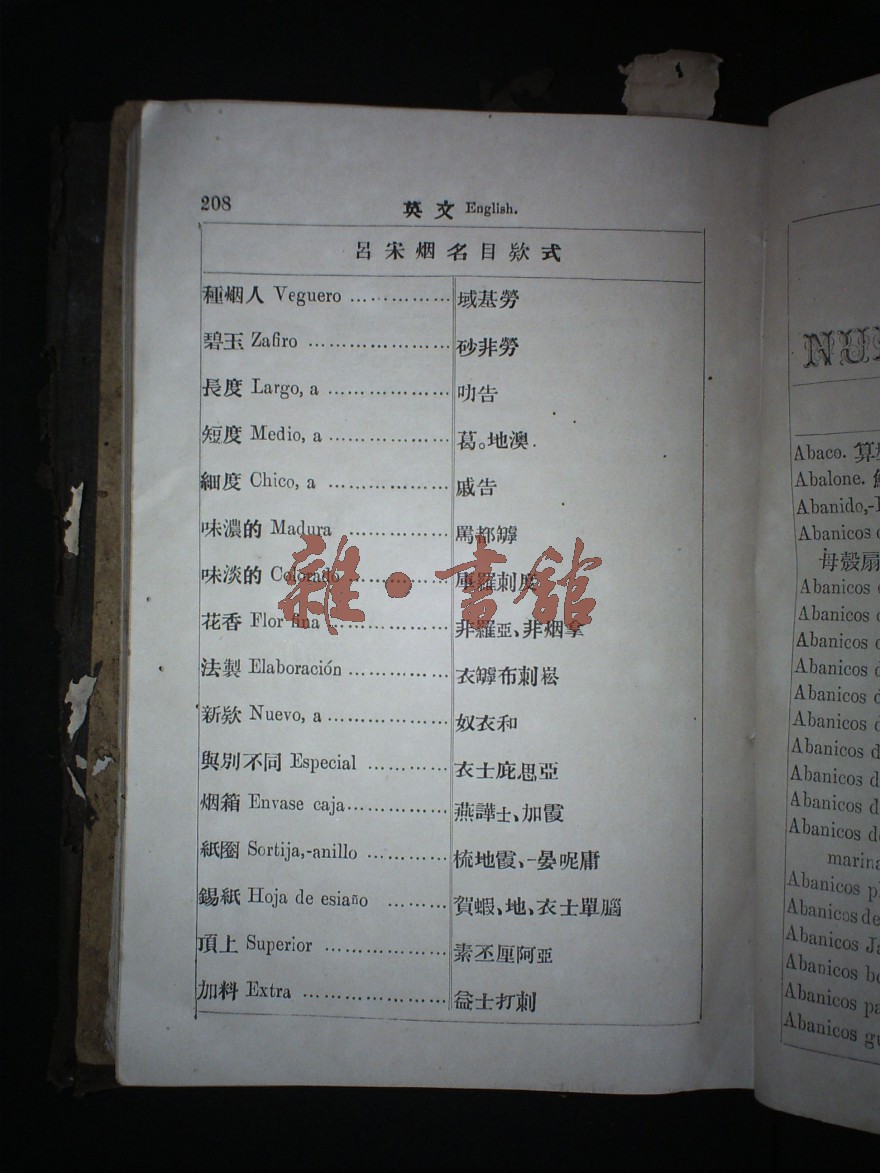 208 英文 English.
呂宋烟名目欵式
種烟人 Veguero ............... 域基勞
碧玉 Zafiro .................... 砂非勞
長度 Largo, a .................. 叻告
短度 Medio, a .................. 葛。地澳.
細度 Chico, a .................. 戚告
味濃的 Madura ............... 罵都罅
味淡的 Colorado ............... 羅刺度
花香 Flor fina .................. 非羅亞、非烟拿
法製 Elaboración ............... 衣罅布刺崧
新欵 Nuevo, a .................. 奴衣和
與別不同 Especial ............ 衣士庇思亞
烟箱 Envase caja............... 燕譁士、加霞
紙圈 Sortija,-anillo ............ 梳地霞、-晏呢庸
錫紙 Hoja de esiaño ......... 賀蝦、地、衣士單腦
頂上 Superior .................. 素丕厘阿亞
加料 Extra ..................... 益士打刺
雜·書館
Abaco. 算
Abalone.
Abanido,-
Abanicos
母殼扇
Abanicos
Abanicos
Abanicos
Abanicos
Abanicos
Abanicos
Abanicos d
Abanicos d
Abanicos d
Abanicos de
marina
Abanicos p
Abanicos de
Abanicos Ja
Abanicos bo
Abanicos pa
Abanicos gu